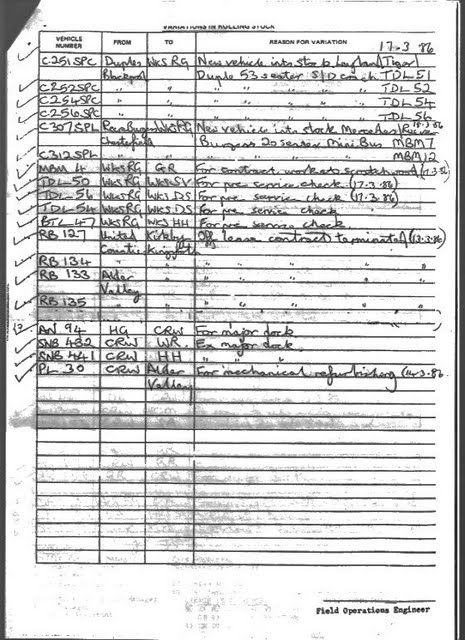 VARIATIONS IN ROLLING STOCK
17-3 86
VEHICLE NUMBER FROM TO REASON FOR VARIATION
C251SPC Duples WKS RG New vehicle into stock Leyland Tiger/
Blackpool Duple 53 seater S/D coach TDL 51
C252SPC " " " " " TDL 52
C254SPC " " " " " TDL 54
C256SPC " " " " " TDL 56
C307SPL WKSRG New vehicle into stock Mercedes/Reeve 18-3-86
Chesterfield Burgess 20 seater Mini Bus MBM7
C312SPL " " " " MBM12
MBM 4 WKSRG GR For contract work at (17.3.86)
TDL-50 WKSRG WKSSV For pre service check (17.3.86)
TDL 56 WKSRG WKS DS For pre service check (17.3.86)
TDL-54 WKSRG WKS.DS For pre service check
BTL 47 WKSRG WKS HH For pre service check
RB 127 United Kirkby Off lease contract terminated (13.3.86)
Counties
RB 134 " " " " " "
RB 133 Alder " " " " "
Valley
RB 135 " " " " " "
AN 94 HG CRW For major dock
SNB 432 CRW WR. Ex major dock
SNB 441 CRW HH " " "
PL 30 CRW Alder For mechanical refurbishing (14.3.86
Valley
Field Operations Engineer